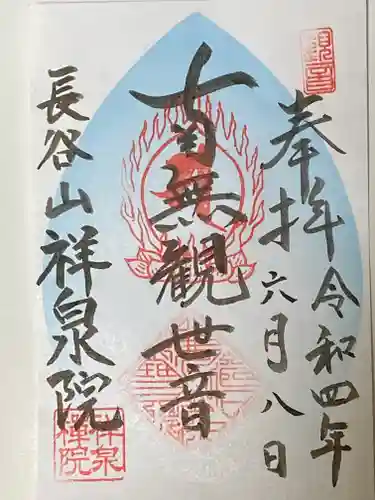 奉拝
令和四年
六月八日
南無観世音
長谷山祥泉院
観音
祥泉
禅院